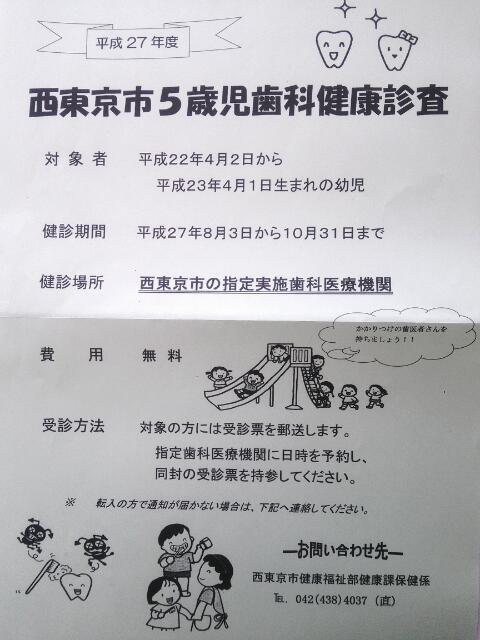 平成27年度
西東京市5歳児歯科健康診査
対象者 平成22年4月2日から
平成23年4月1日生まれの幼児
健診期間 平成27年8月3日から10月31日まで
健診場所 西東京市の指定実施歯科医療機関
かかりつけの歯医者さんを
持ちましょう！！
費用 無料
受診方法 対象の方には受診票を郵送します。
指定歯科医療機関に日時を予約し、
同封の受診票を持参してください。
※ 転入の方で通知が届かない場合は、下記へ連絡してください。
―お問い合わせ先―
西東京市健康福祉部健康課保健係
TEL. 042(438)4037 (直)